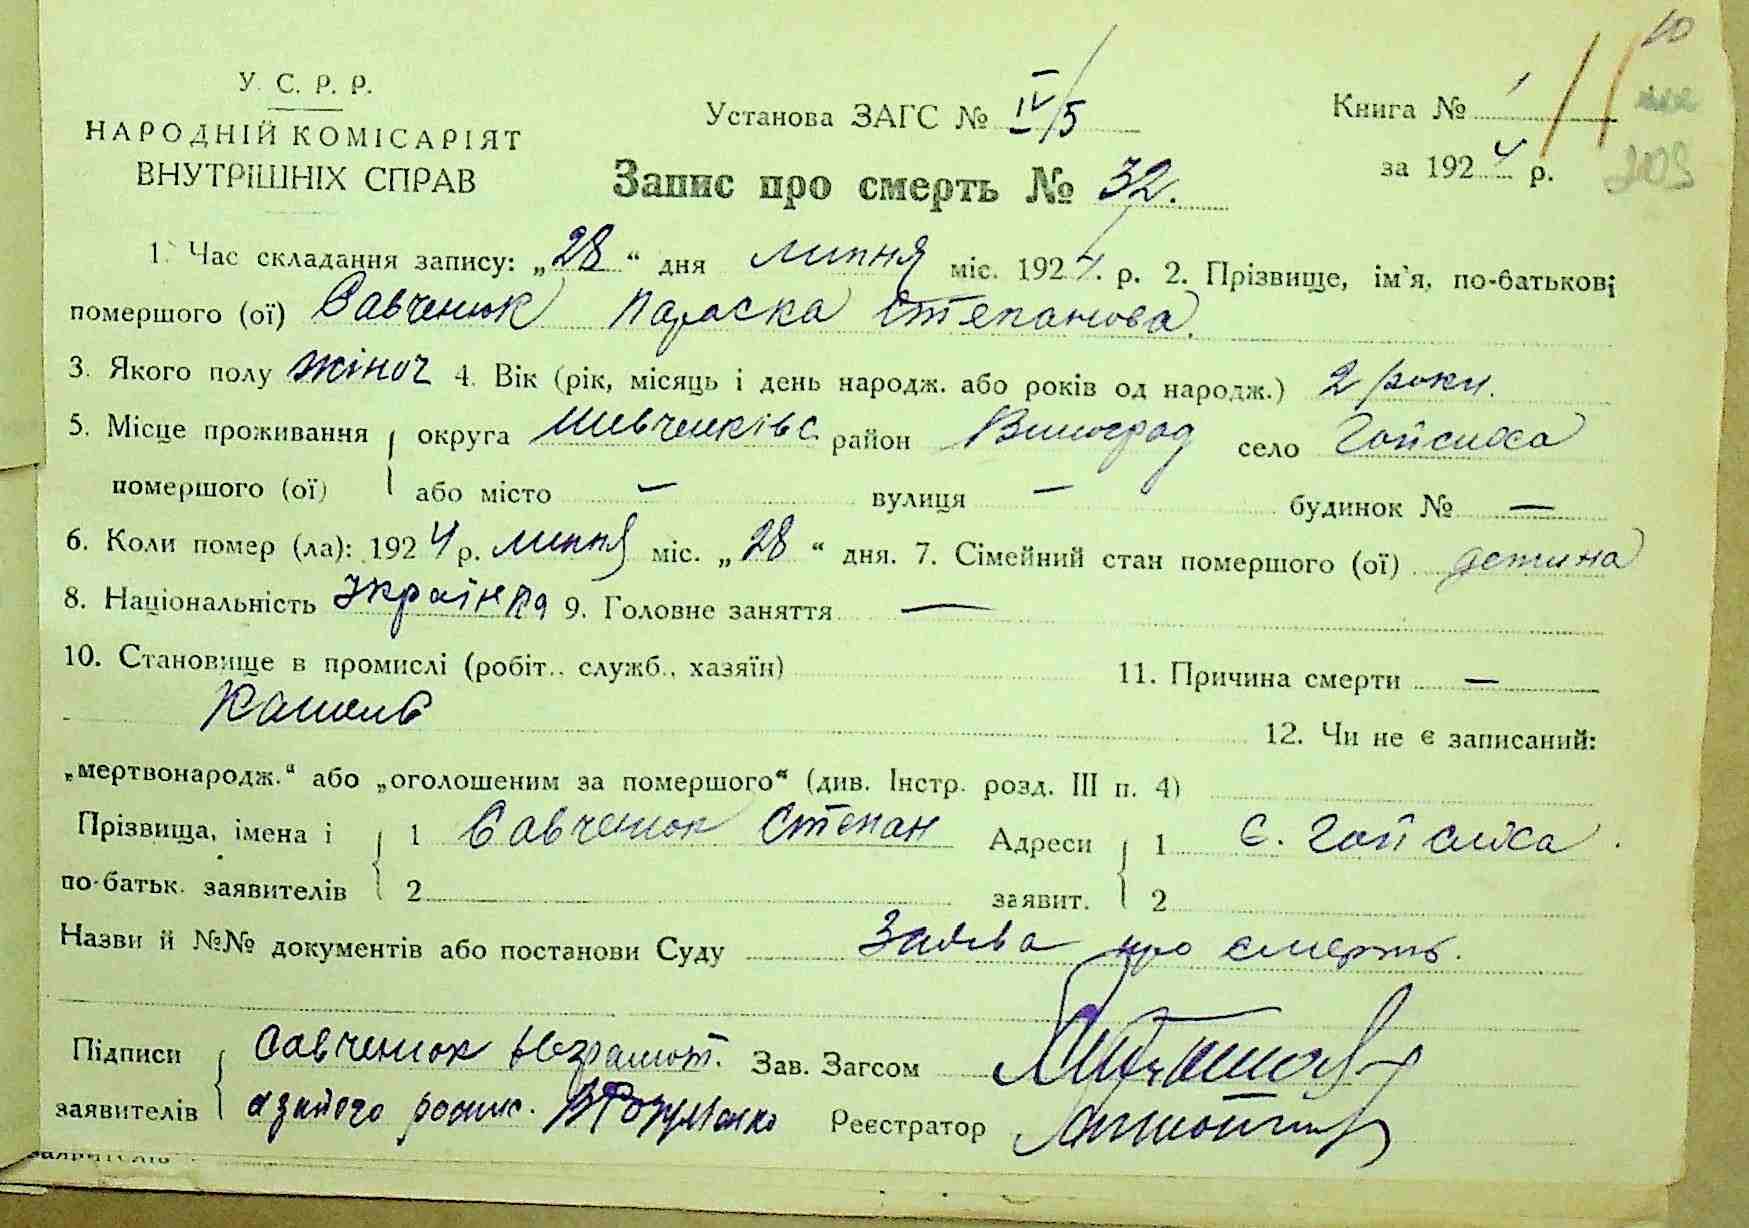 У. С. Р. Р.
НАРОДНІЙ КОМІСАРІЯТ
ВНУТРІШНІХ СПРАВ
Установа ЗАГС № IV/5
Запис про смерть № 32.
Книга № 1
за 1924 р.
10
203
1. Час складання запису: „28“ дня липня міс. 1924. р. 2. Прізвище, ім'я, по-батькові
помершого (ої) Савченюк Параска Степанова.
3. Якого полу жіноч 4. Вік (рік, місяць і день народж. або років од народж.) 2 роки.
5. Місце проживання округа Шевченківс район Виноград село Гапсиха
помершого (ої) або місто — вулиця — будинок № —
6. Коли помер (ла): 1924 р. липня міс. „28“ дня. 7. Сімейний стан помершого (ої) детина
8. Національність Українка 9. Головне заняття —
10. Становище в промислі (робіт., служб., хазяїн) 11. Причина смерти —
Кашель 12. Чи не є записаний:
„мертвонародж.“ або „оголошеним за помершого“ (див. Інстр. розд. III п. 4)
Прізвища, імена і 1 Савченюк Степан Адреси 1 с.
по-батьк. заявителів 2 заявит. 2
Назви й №№ документів або постанови Суду Заява про смерть.
Підписи Савченюк неграмот. Зав. Загсом
заявителів а за його розпис. Реєстратор
заявителів